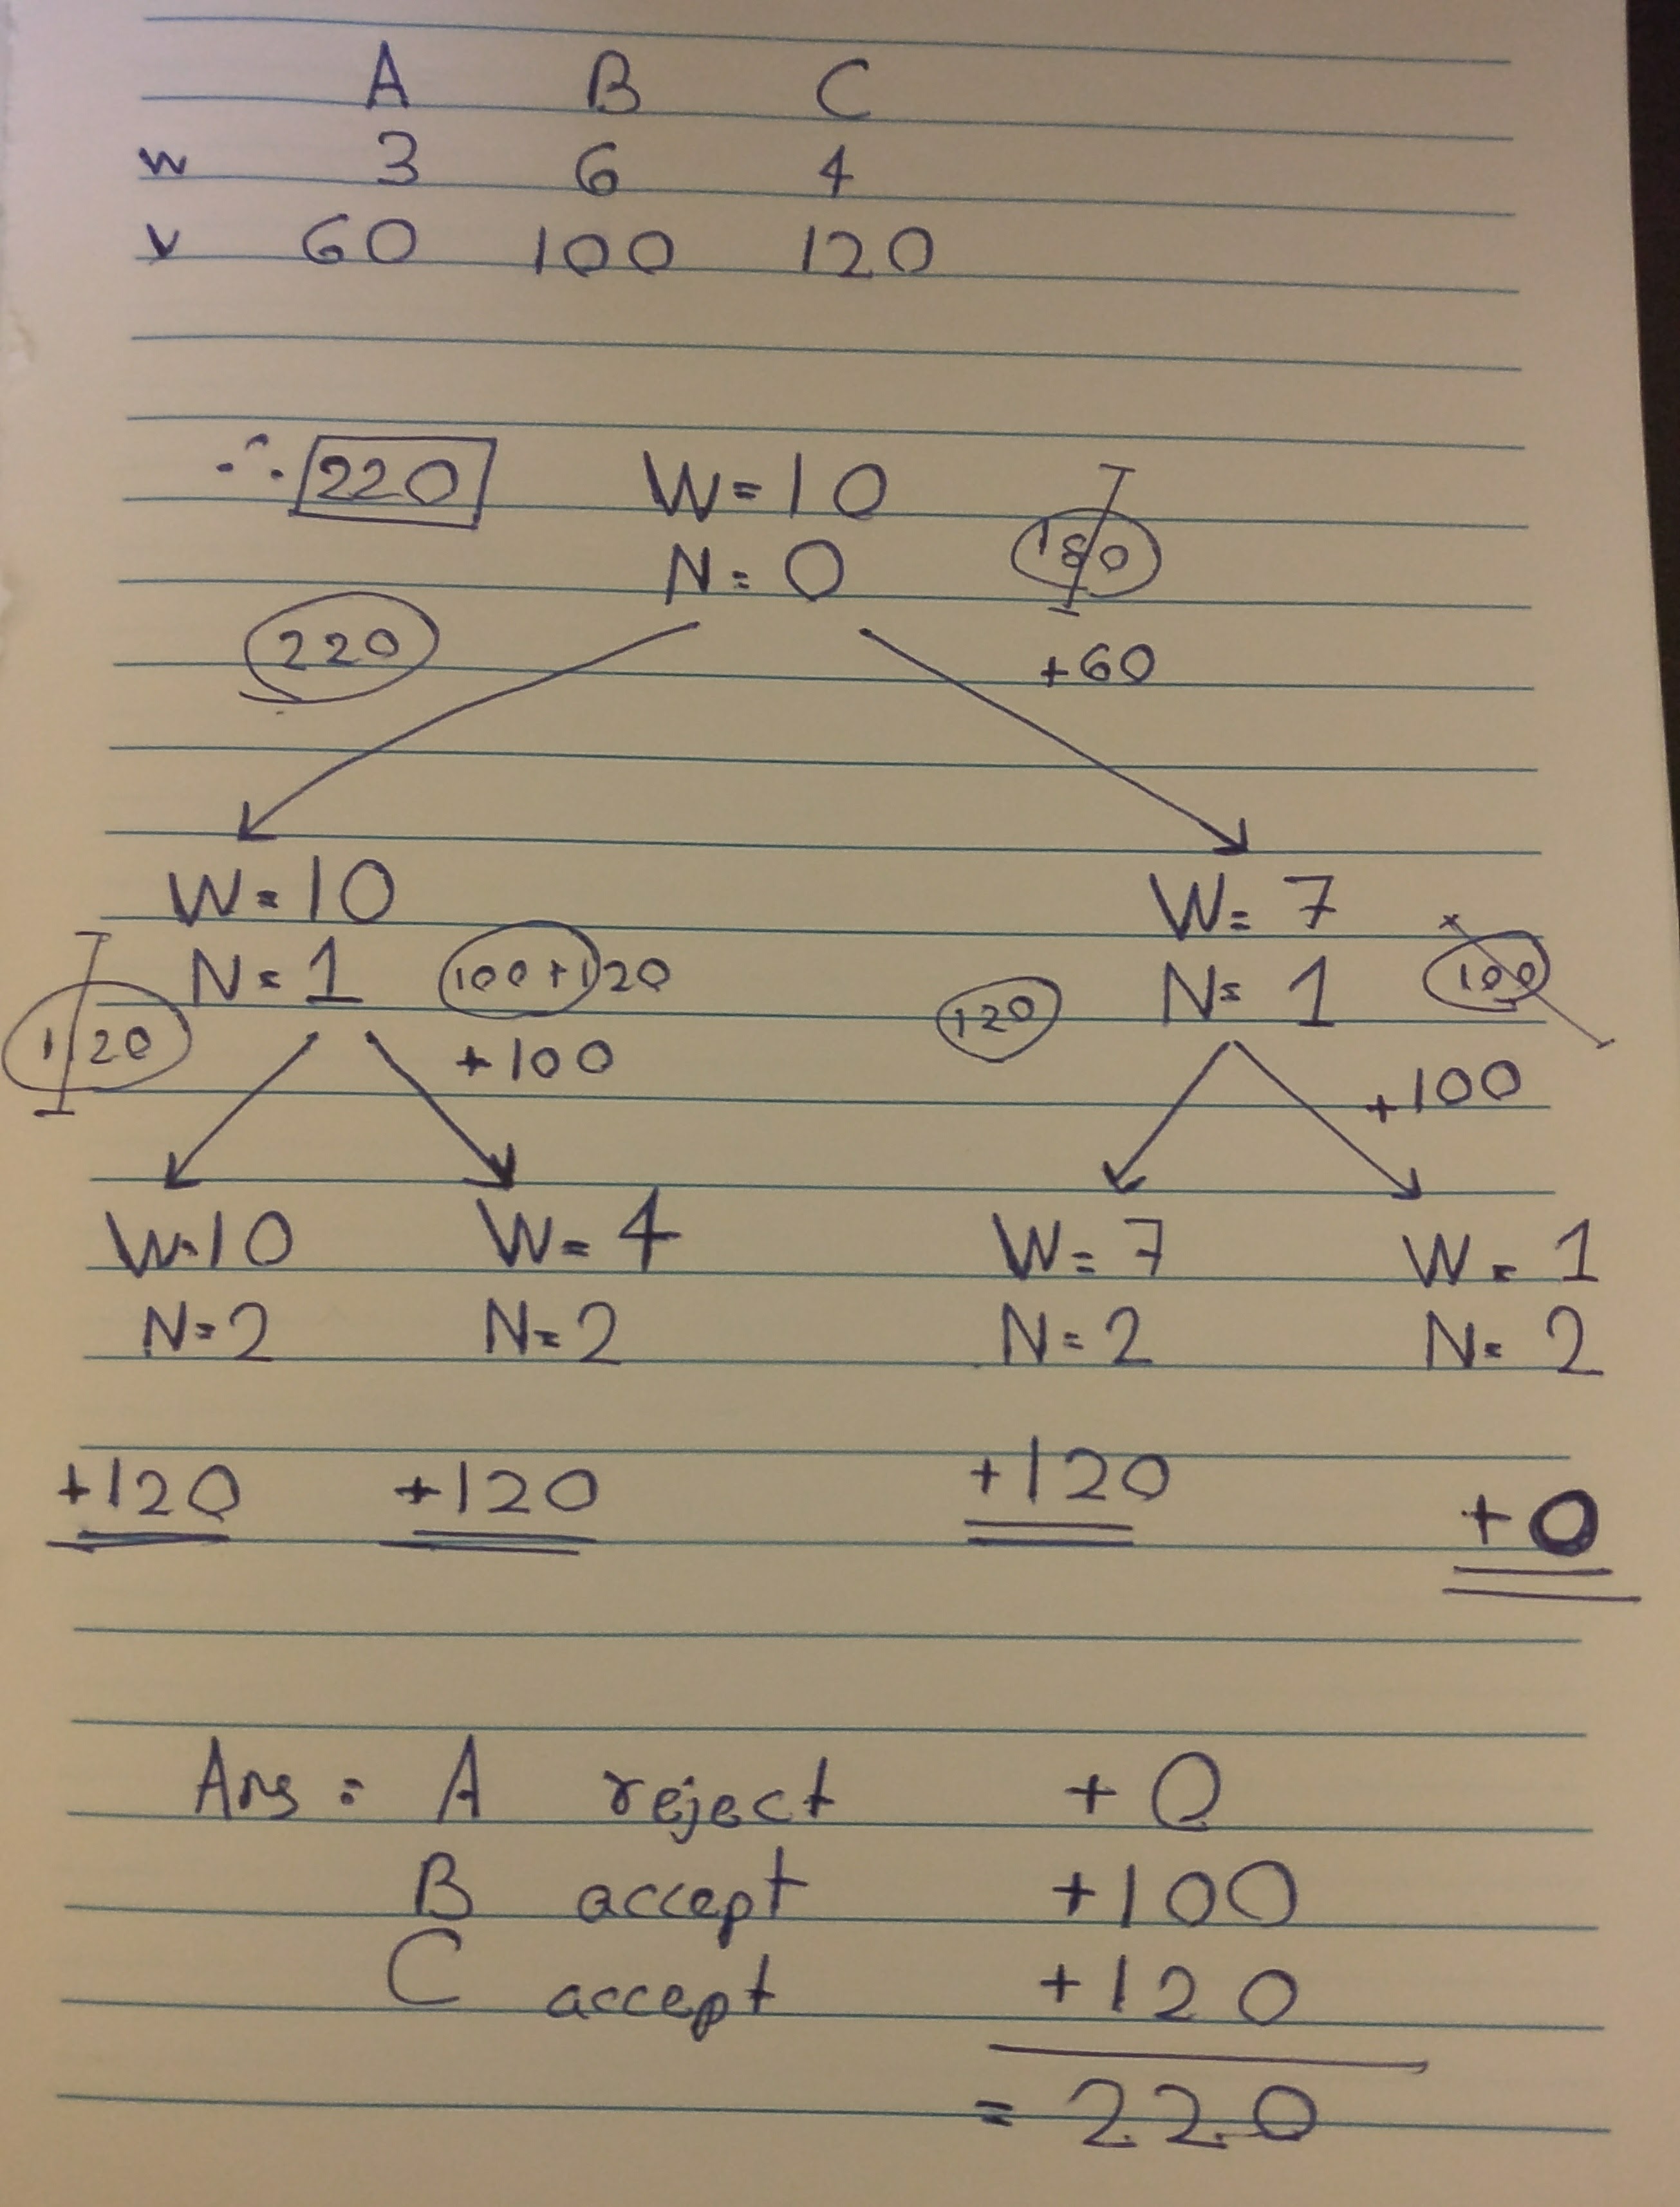 A B C
w 3 6 4
v 60 100 120
∴ 220 W=10 180
N=0
220 +60
W=10 W=7
N=1 100+120 N=1 100
120 +100 120 +100
W=10 W=4 W=7 W=1
N=2 N=2 N=2 N=2
+120 +120 +120 +0
Ans: A reject +0
B accept +100
C accept +120
=220